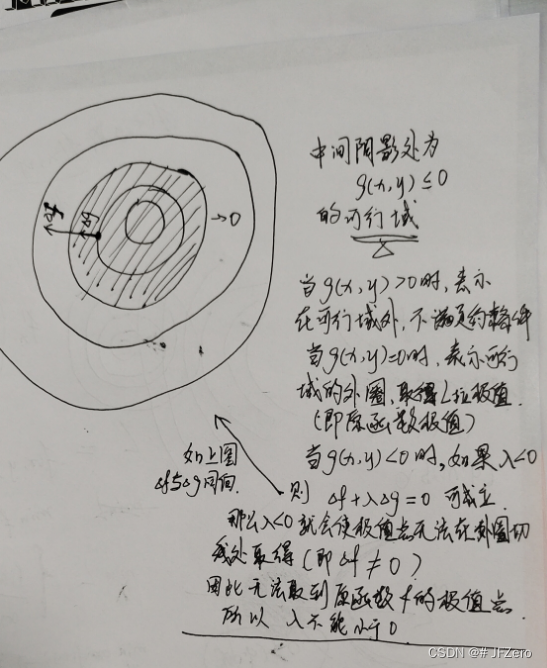 中间阴影处为
g(x,y)≤0
的可行域
→0
△f
△g
当g(x,y)>0时,表示
在可行域外,不满足约束条件
当g(x,y)=0时,表示可行
域的外圈,取得L拉极值.
(即原函数极值)
当g(x,y)<0时,如果λ<0
如上图
△f与△g同向.
则 △f+λ△g=0 可成立.
那么λ<0就会使极值点无法在外圈切
线处取得(即△f≠0)
因此无法取到原函数f的极值点.
所以 λ不能小于0
CSDN @# JFZero